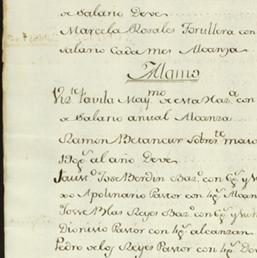 de salario Deve
Marcela Rosales Trullera con
salario Cada mes Alcanza
Illamo
Viz.te Davila May.mo de esta Haz.a con
de salario anual Alcanza
Ramon Betancur Sobres.te maio
al año Deve
Faust.o Josse Berdin Baz.o con 6p.s y
Apolinario Pastor con 4p.s Alcan
Josse Blas Reyes Baz.o con 6p.s y
Dionicio Pastor con 4p.s alcanzan
Pedro de los Reyes Pastor con 4p.s De